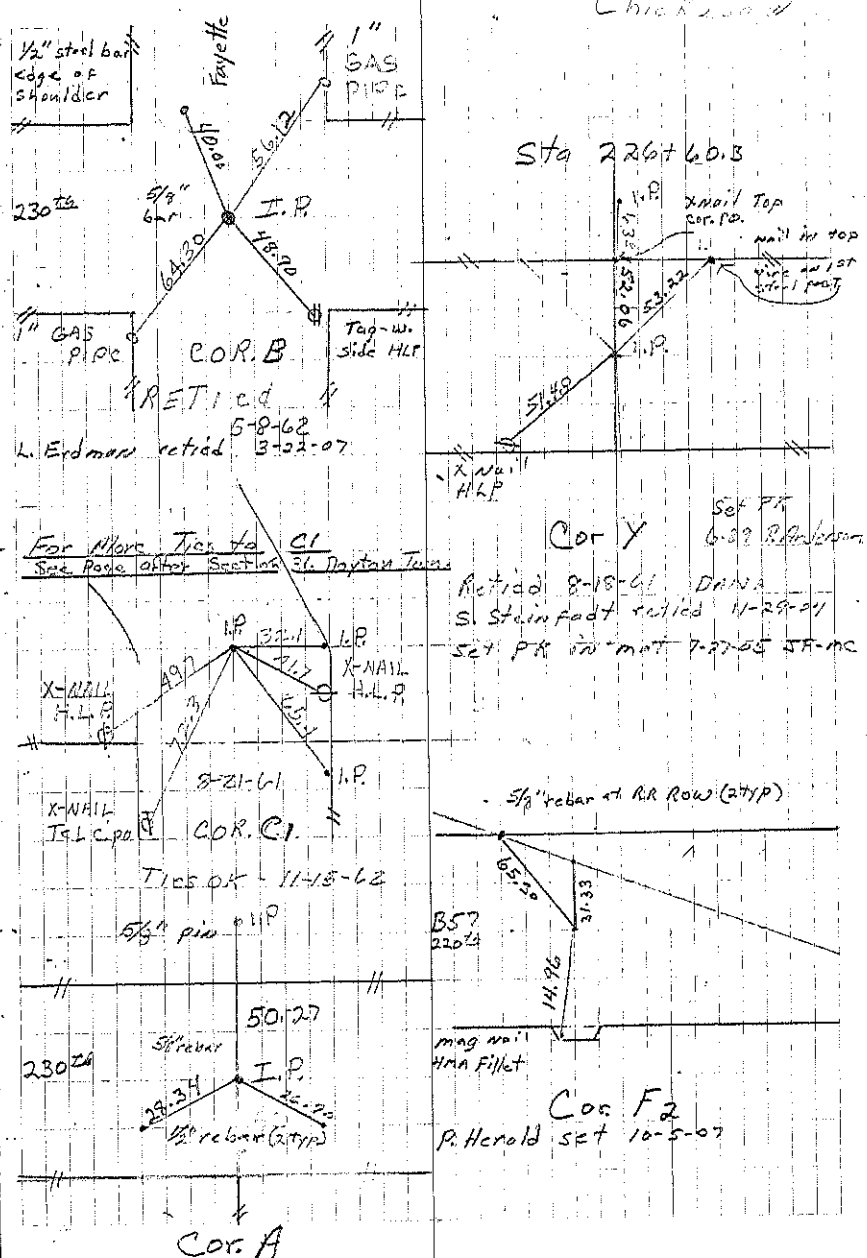 Chickasaw
1/2" steel bar
edge of
shoulder
Fayette
1"
GAS
PIPE
40.00
56.12
5/8"
bar
I.P.
230 th
64.30
48.90
1" GAS
PIPE
COR. B
Tag-w.
side HLP
RETied
5-8-62
L. Erdman retied 3-22-07
For More Ties to C1
See Page after Section 31 Dayton Twp.
I.P.
32.1
I.P.
49.7
71.7
X-NAIL
H.L.P.
X-NAIL
H.L.P.
72.3
8-21-61
I.P.
X-NAIL
Tel. c.po
COR. C1.
Ties OK - 11-15-62
5/8" pin
I.P.
50.27
5/8" rebar
230 th
I.P.
28.34
26.90
1/2" rebar (2typ)
Cor. A
Sta 226+60.3
I.P.
X Nail Top
cor. po.
nail in top
wire on 1st
steel post
52.06
53.22
I.P.
51.40
X Nail
HLP
Cor Y
Set PK
6-89 R. Anderson
Retied 8-18-61 DANA
S. Steinfadt retied 11-29-04
set PK in mat 7-27-05
5/8" rebar at RR ROW (2typ)
65.20
31.33
B57
220 th
14.96
mag nail
HMA Fillet
Cor. F2
P. Herold set 10-5-07